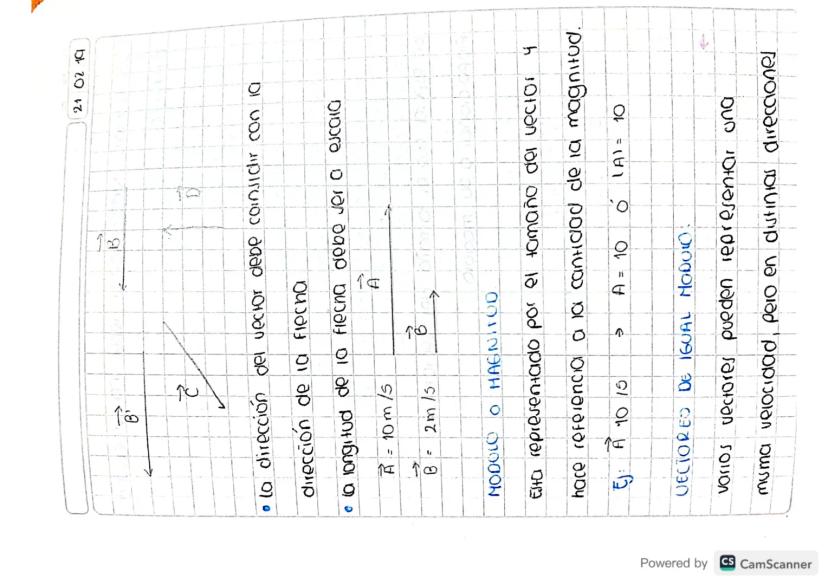 21 02 19
B'
B
C
D
• la dirección del vector debe coinsidir con la
dirección de la flecha
• la longitud de la flecha debe ser a escala
A = 10 m/s A
B = 2 m/s B
MODULO O MAGNITUD
Esta representado por el tamaño del vector y
hace referencia a la cantidad de la magnitud.
Ej: A 10 / → A = 10 ó |A| = 10
VECTORES DE IGUAL MODULO.
varios vectores pueden representar una
misma velocidad, pero en distintas direcciones
Powered by CS CamScanner